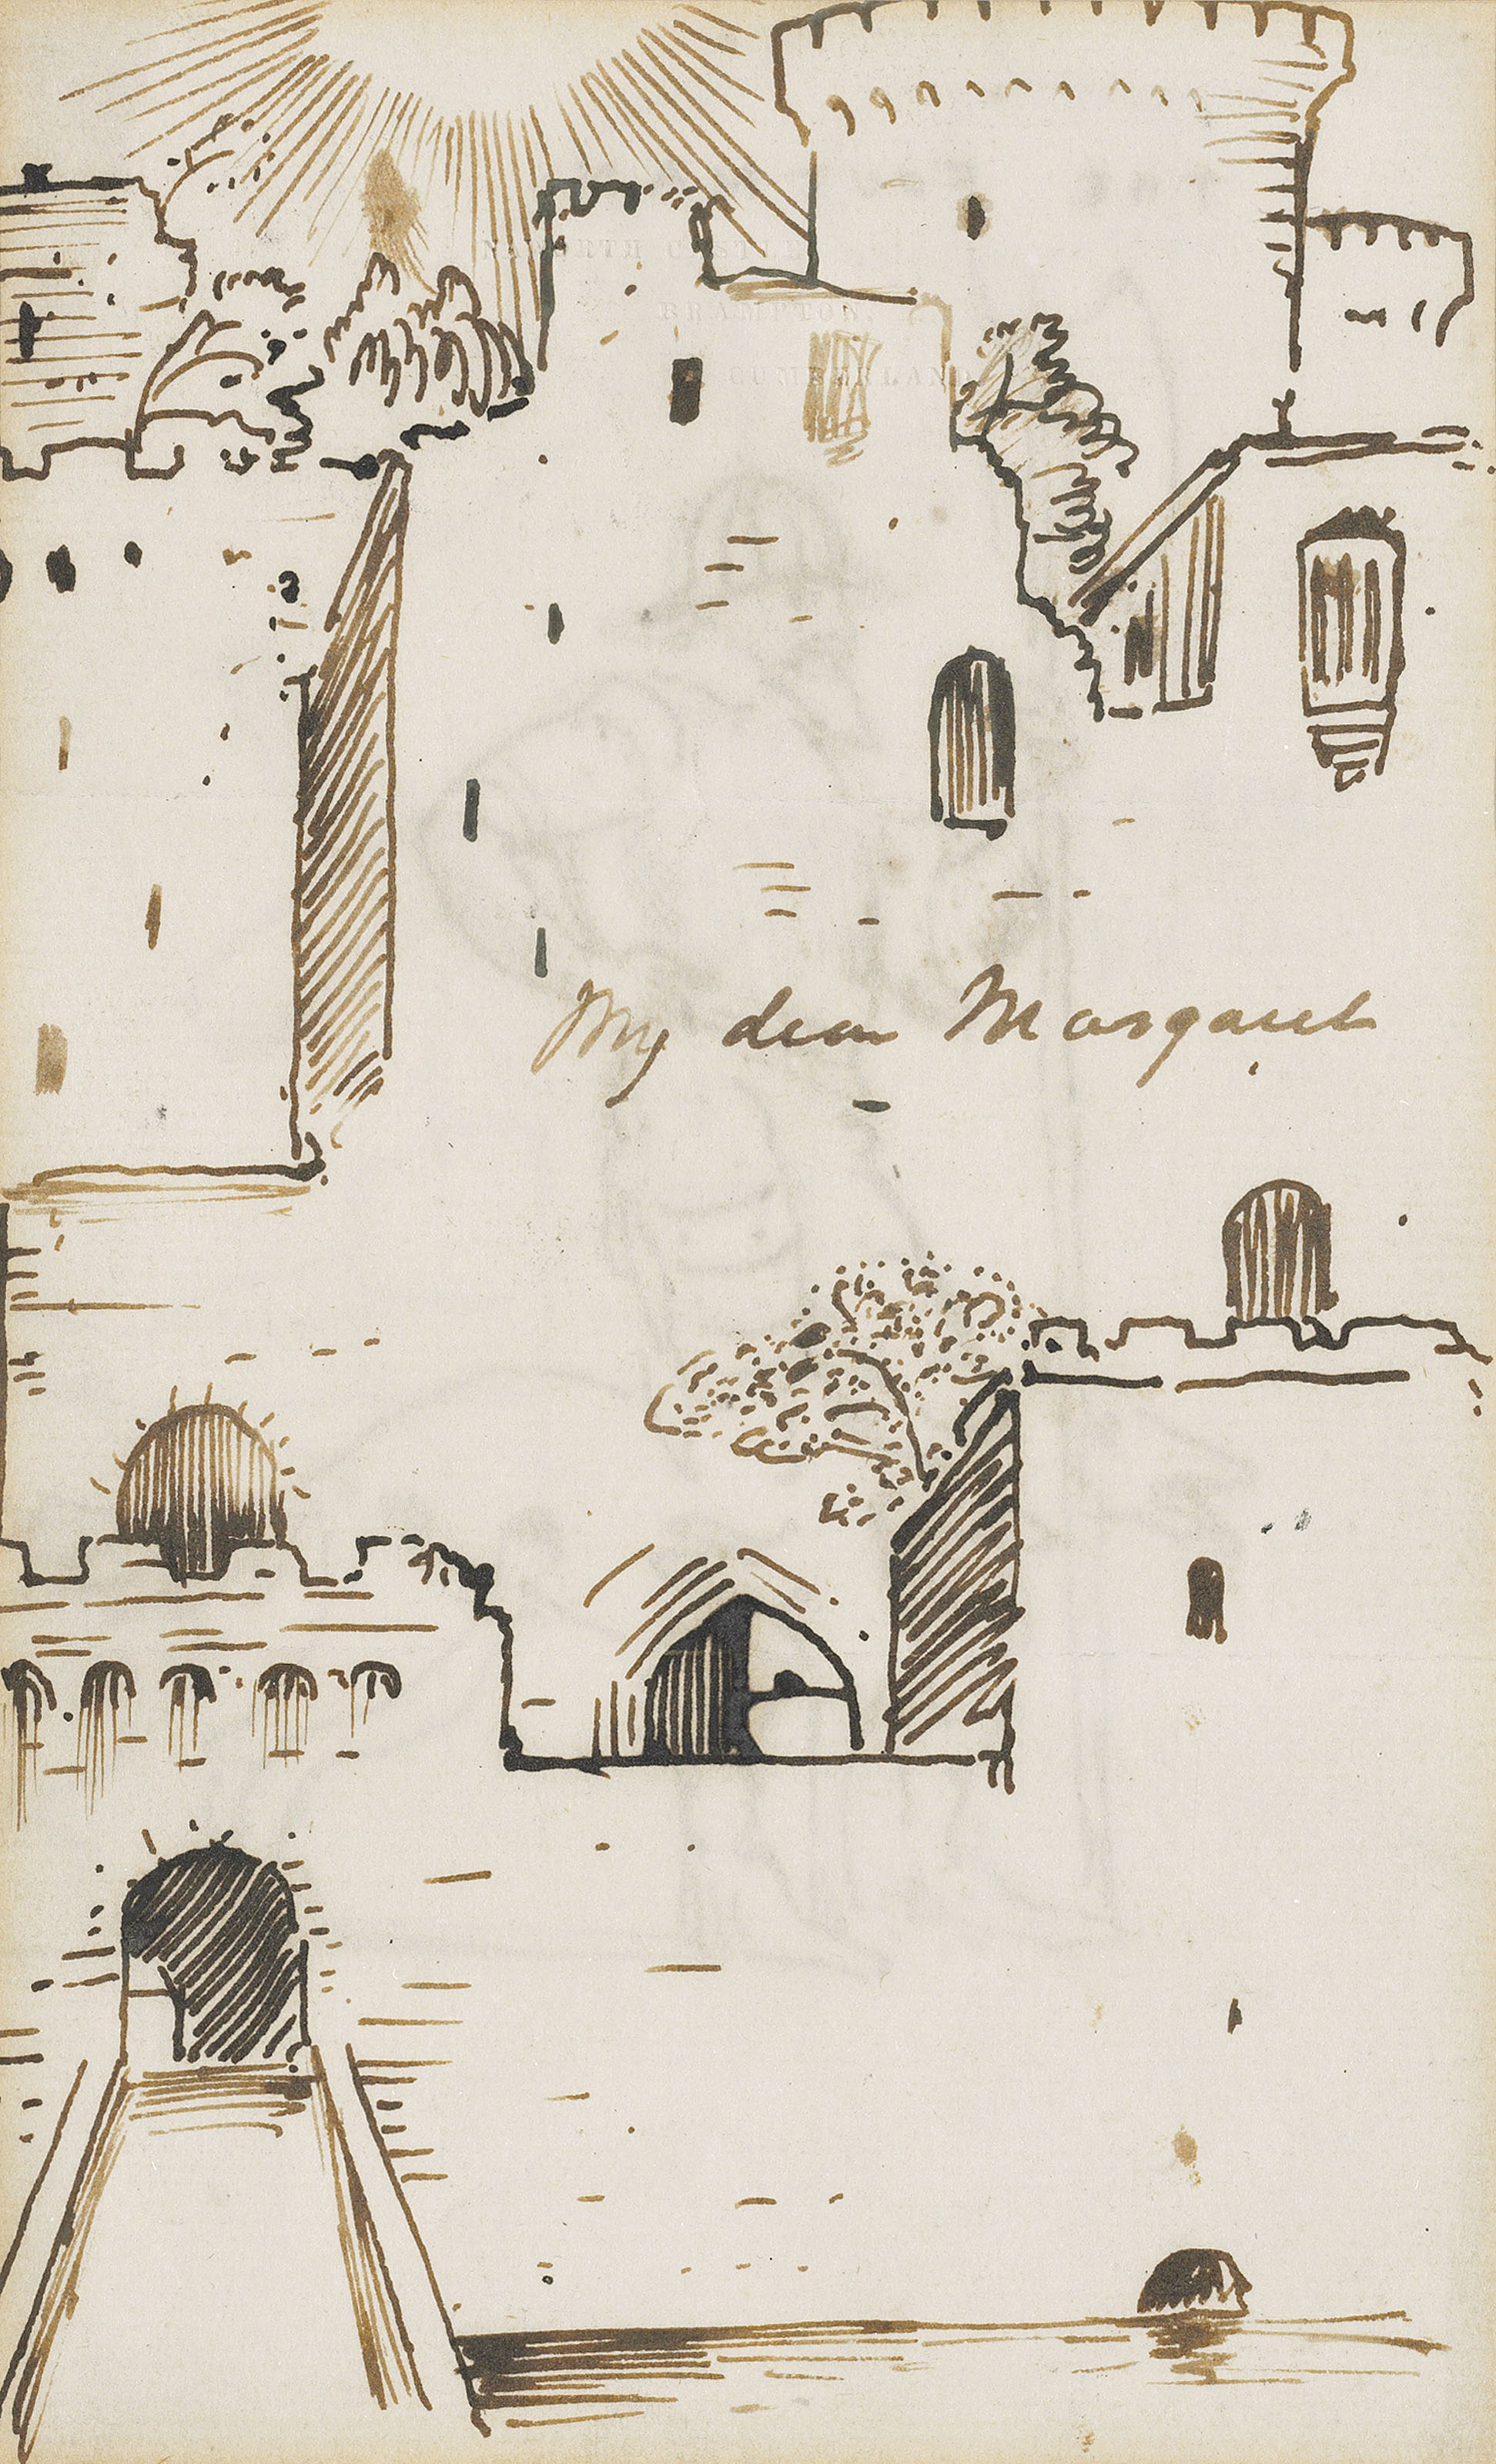 NAWORTH CASTLE,
BRAMPTON,
CUMBERLAND.
My dear Margaret